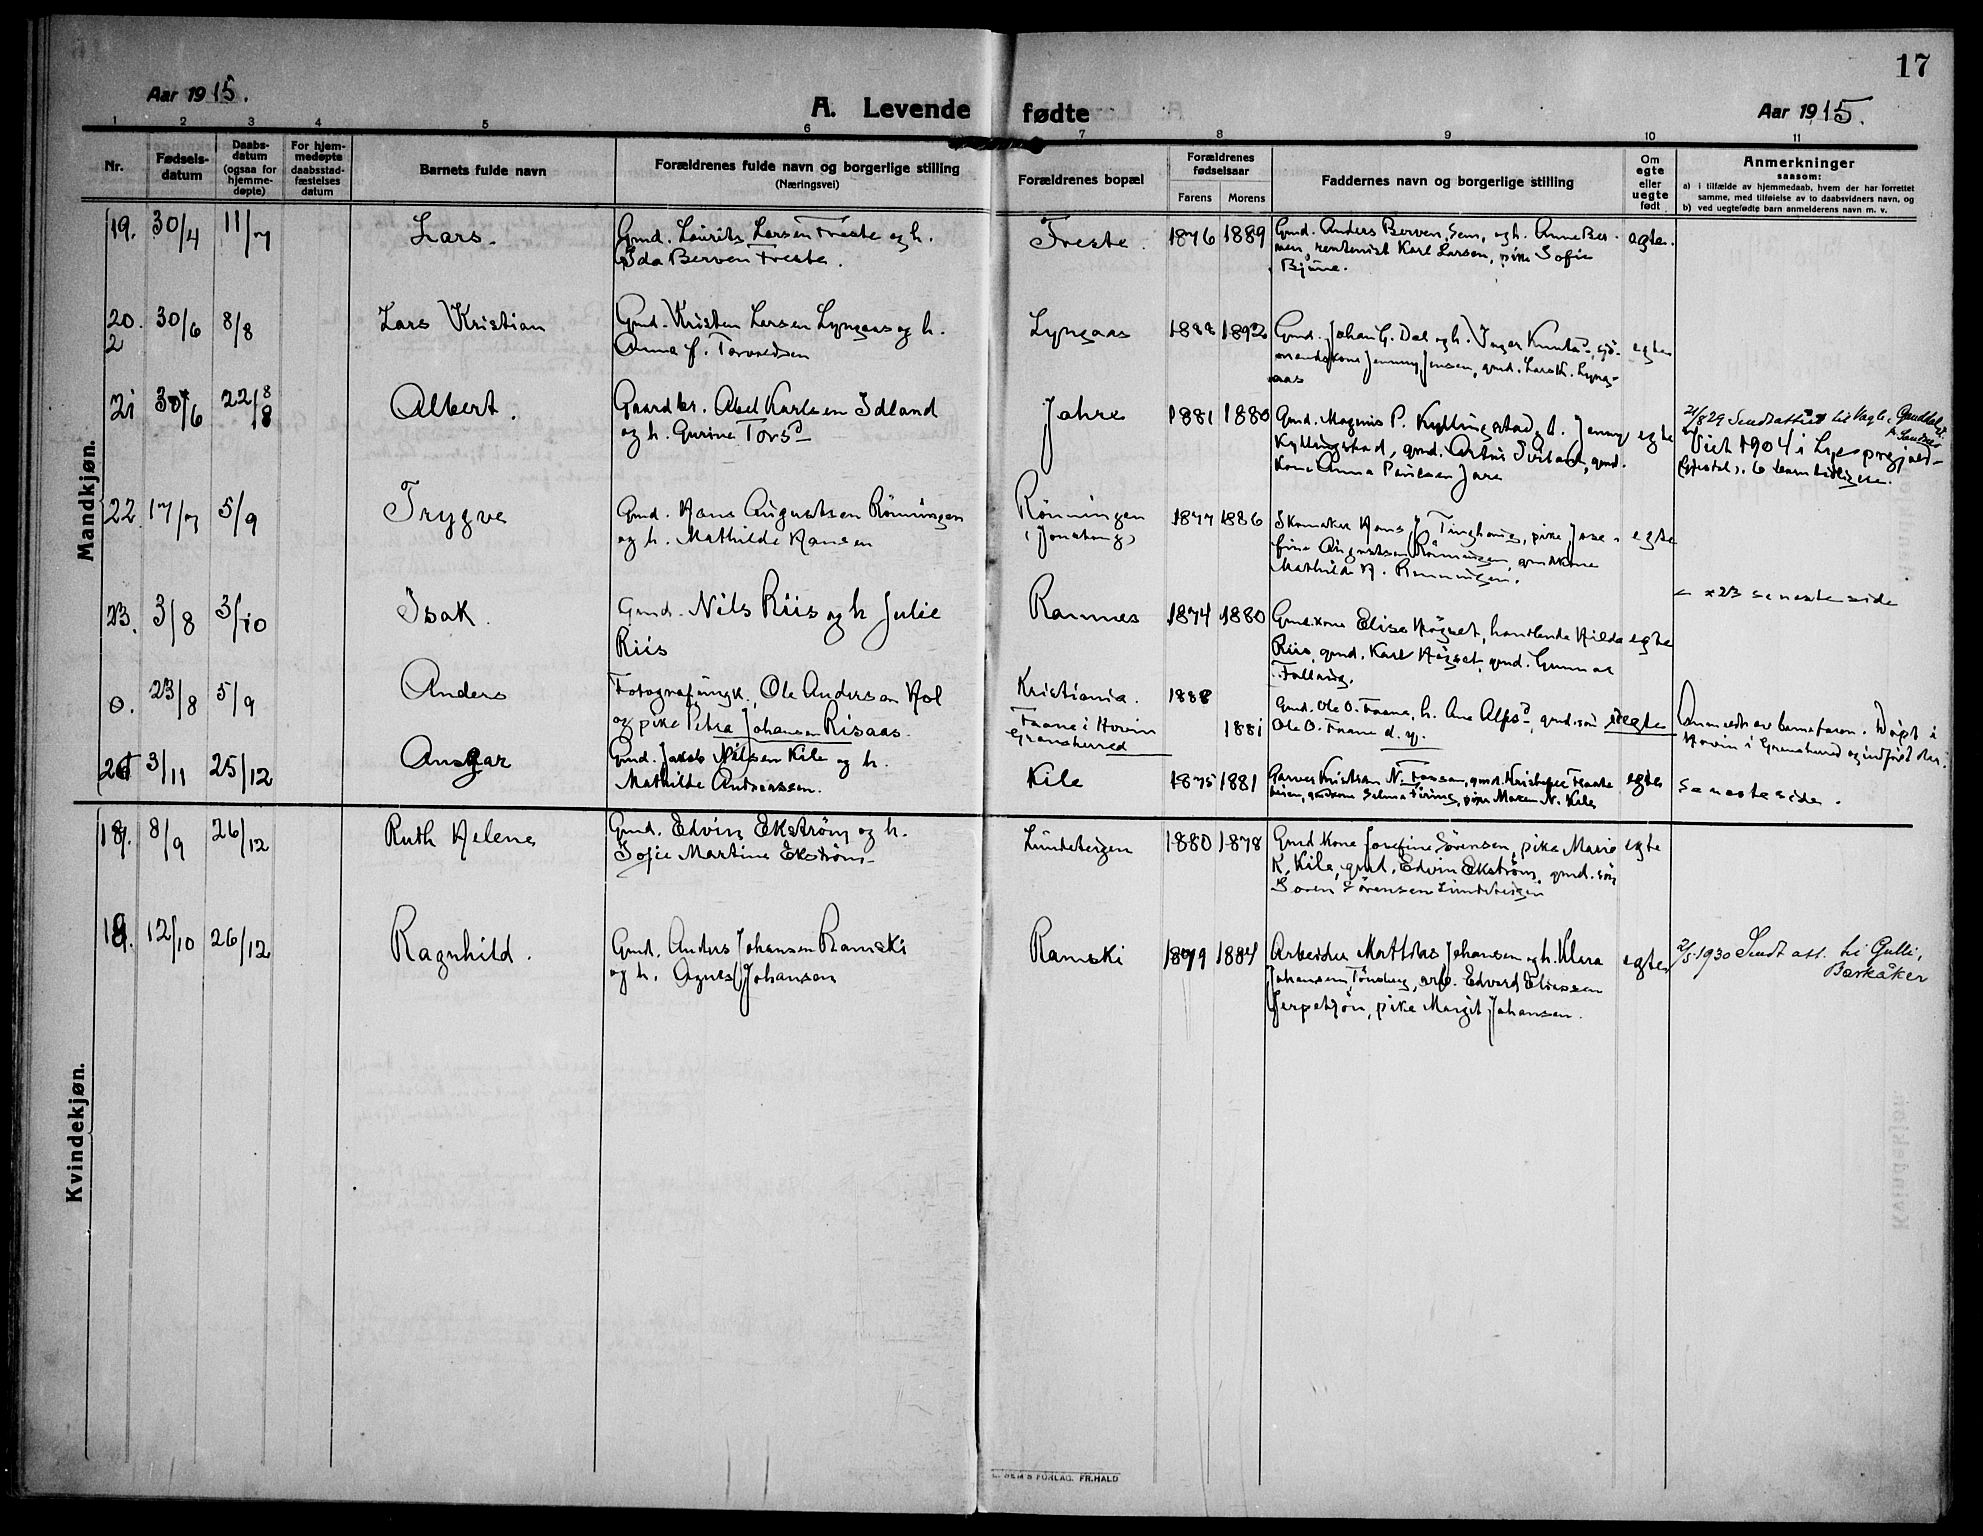 17
Aar 1915.
A. Levende
fødte
Aar 1915.
1 2 3 4 5 6 7 8 9 10 11
Nr.
Fødsels-
datum
Daabs-
datum
(ogsaa for
hjemme-
døpte)
For hjem-
medøpte
daabsstad-
fæstelses
datum
Barnets fulde navn
Forældrenes fulde navn og borgerlige stilling
(Næringsvei)
Forældrenes bopæl
Forældrenes
fødselsaar
Farens Morens
Faddernes navn og borgerlige stilling
Om
egte
eller
uegte
født
Anmerkninger
saasom:
a) i tilfælde av hjemmedaab, hvem der har forrettet
samme, med tilføielse av to daabsvidners navn, og
b) ved uegtefødte barn anmelderens navn m. v.
Mandkjøn.
19. 30/4 11/7 Lars.
Gmd. Laurits Larsen Freste og h.
Ida Berven Freste.
Freste. 1876 1889
Gmd. Anders Berven, Sem, og h. Anne Ber-
ven, rentenist Karl Larsen, pike Sofie
Bjune.
egte.
20. 30/6 8/8 Lars Kristian
2
Gmd. Kristen Larsen Lyngaas og h.
Anna f. Torvaldsen
Lyngaas 1888 1892
Gmd. Johan G. Dal og h. Inger
Jenny Jensen, gmd. Lars Lyng-
aas
egte
21 30/6 22/8 Albert.
Gaardbr. Abel Karlsen Idland
og h. Gurine Torsd
Jahre 1881 1880
Gmd. Magnus P. Kyllingstad, Jenny
Kyllingstad, gmd. gmd.
kone Anna Paulsen Jare
egte
21/8 29 Sendt attest til Vagle,
Viet 1904 i
6 barn tidligere.
22. 17/7 5/9 Trygve
Gmd. Hans Augustsen Rønningen
og h. Mathilde Hansen
Rønningen
1877 1886
Skomaker Hans pike Jose-
fine Augustsen Rønningen, gmdkone
Mathilde H. Rønningen.
egte
23. 3/8 3/10 Isak.
Gmd. Nils Riis og h Julie
Riis
Ramnes 1874 1880
Gmd.kone Elise Høgset, handlende Hilda
Riis, gmd. Karl Høgset, gmd. Gunnar
egte
x 23 seneste side
0. 23/8 5/9 Anders
Fotografungk. Ole Anderson Hol
og pike Petra Johansen Risaas.
Kristiania. 1888
Faane i Hovin
Gransherred
1881
Gmd. Ole O. Faane, h. Ane Alfsd, gmd.søn
Ole O. Faane d. y.
uegte
Anmeldt av barnefaren. Døpt i
Hovin i Gransherred og indført der.
24 3/11 25/12 Ansgar
Gmd. Jakob Nilsen Kile og h.
Mathilde Andreassen.
Kile 1875 1881
Garver Kristian N. gmd. Kristoffer
gmdkone Selma pike Maren N. Kile
egte
seneste side.
Kvindekjøn.
18. 8/9 26/12 Ruth Helene
Gmd. Edvin Ekstrøm og h.
Sofie Martine Ekstrøm
Lundeteigen 1880 1878
Gmd kone Josefine Sørensen, pike Marie
K. Kile, gmd. Edvin Ekstrøm, gmd. søn
Søren Sørensen Lundeteigen
egte
19. 12/10 26/12 Ragnhild.
Gmd. Anders Johansen Ramski
og h. Agnes Johansen
Ramski 1879 1884
Arbeider Mathias Johansen og h. Klara
Johansen, Tønsberg, arb. Edvard Eliassen
Jerpekjøn, pike Margit Johansen.
egte
2/5 1930 Sendt att. til Gulli,
Barkåker
SEM'S FORLAG. FR.HALD